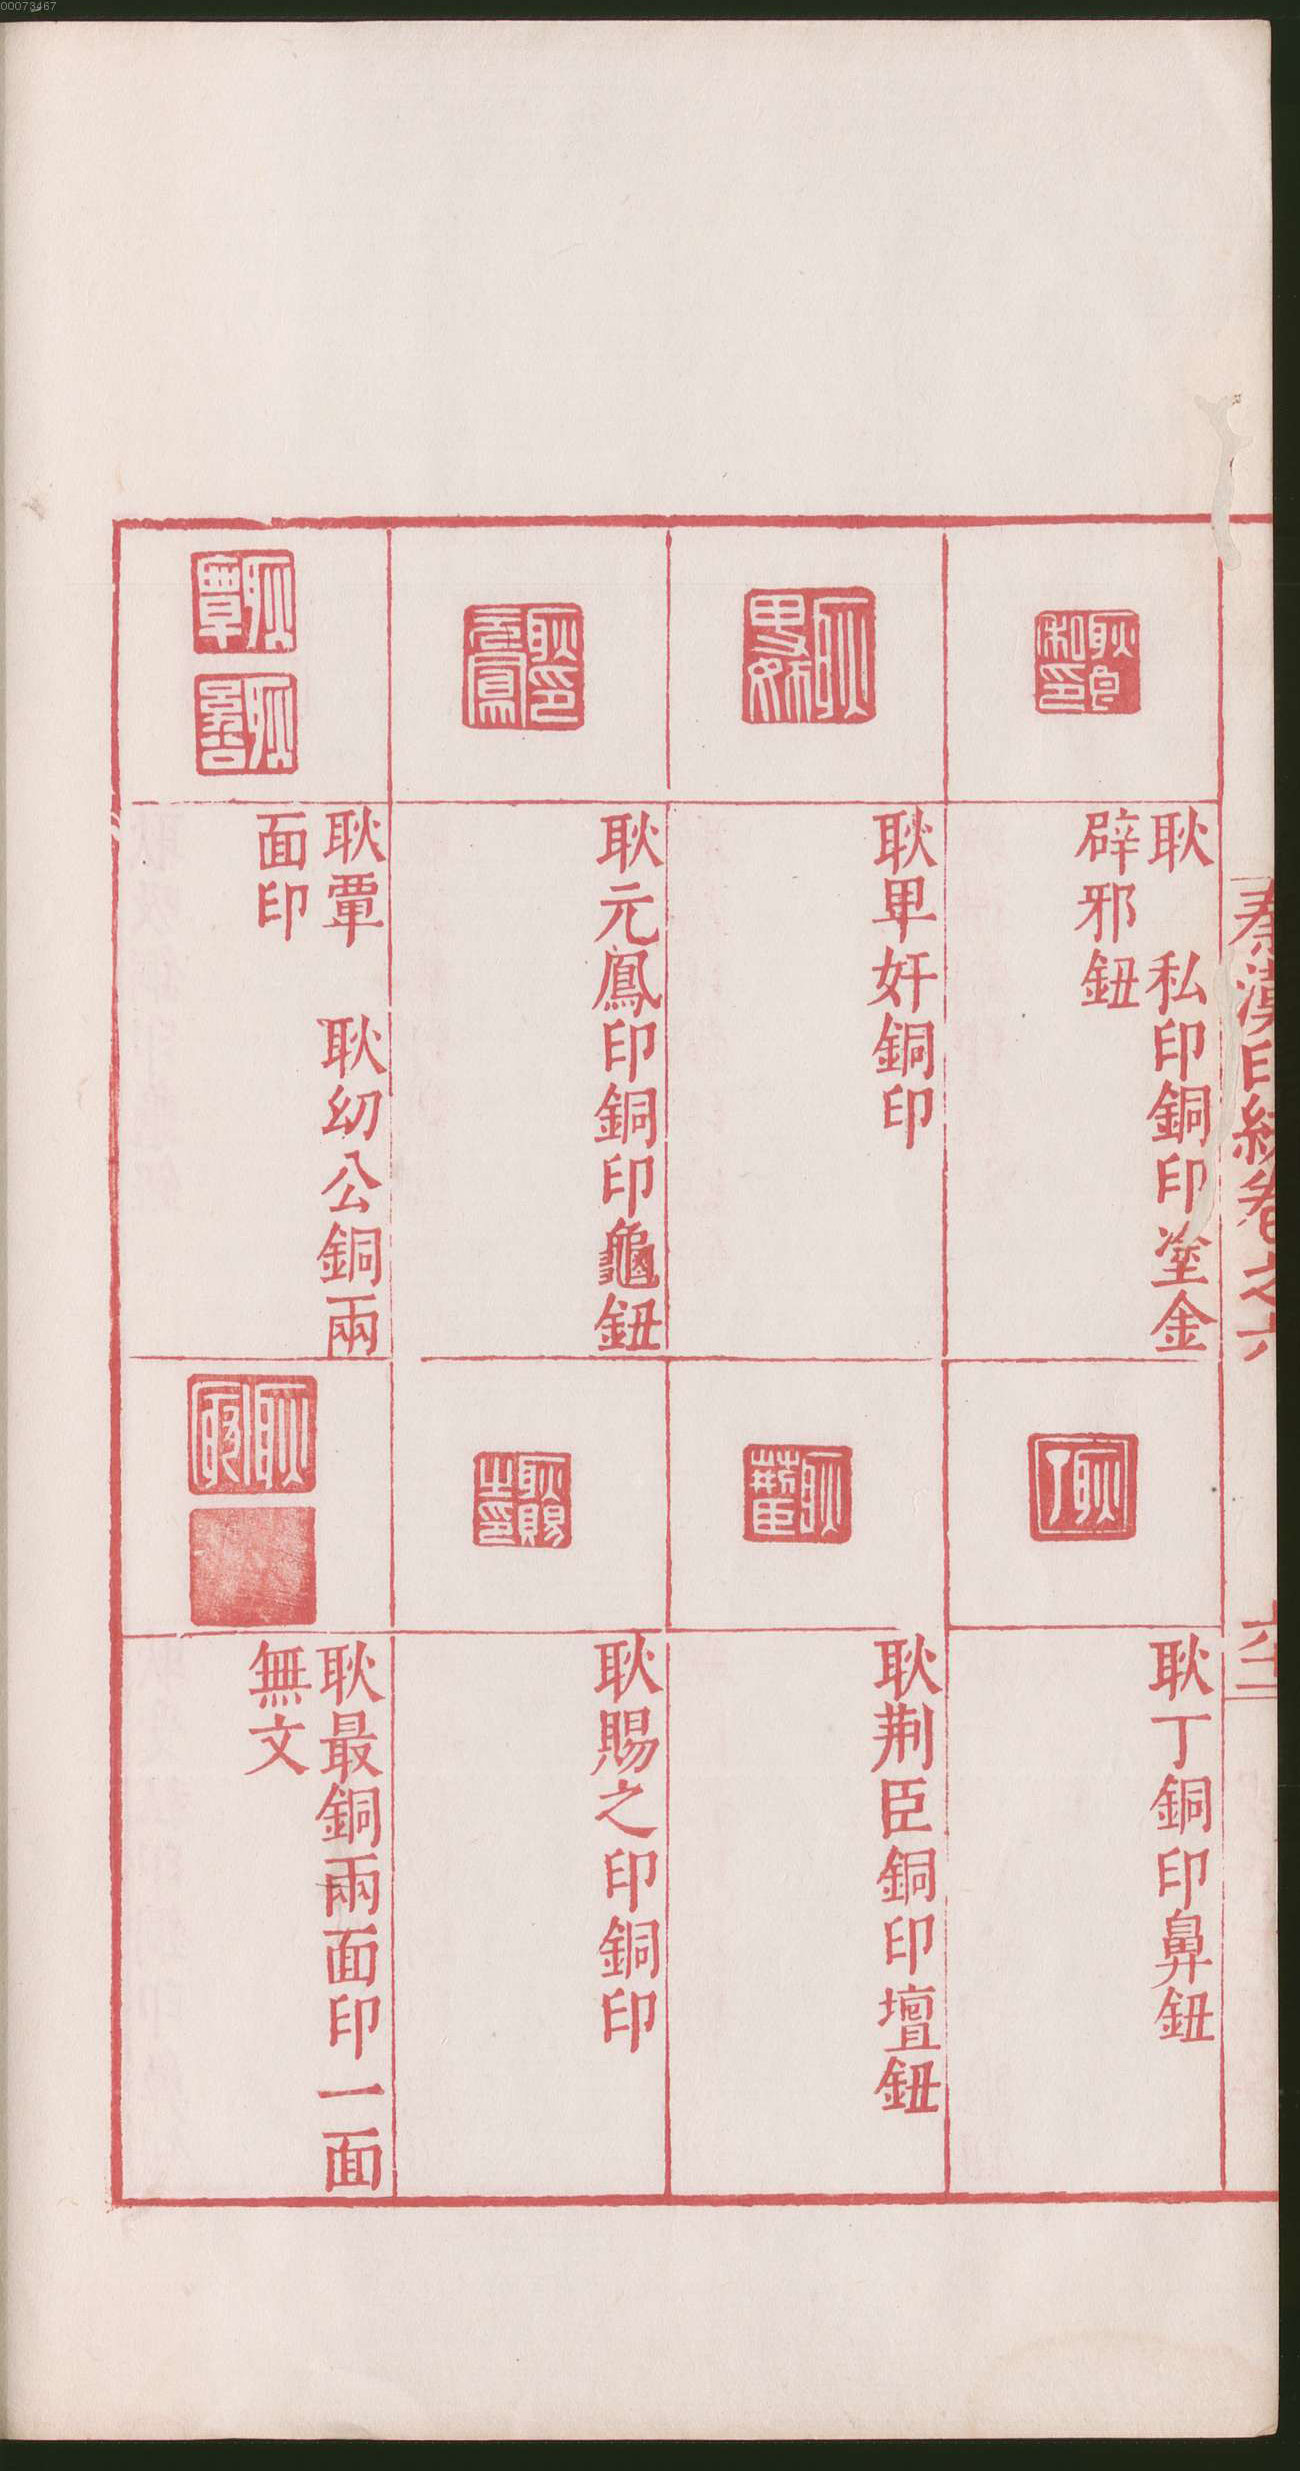 00073467
秦漢印統卷之六
耿　私印銅印塗金
辟邪鈕
耿卑奸銅印
耿元鳳印銅印龜鈕
耿覃　耿幼公銅兩
面印
耿丁銅印鼻鈕
耿荆臣銅印壇鈕
耿賜之印銅印
耿最銅兩面印一面
無文